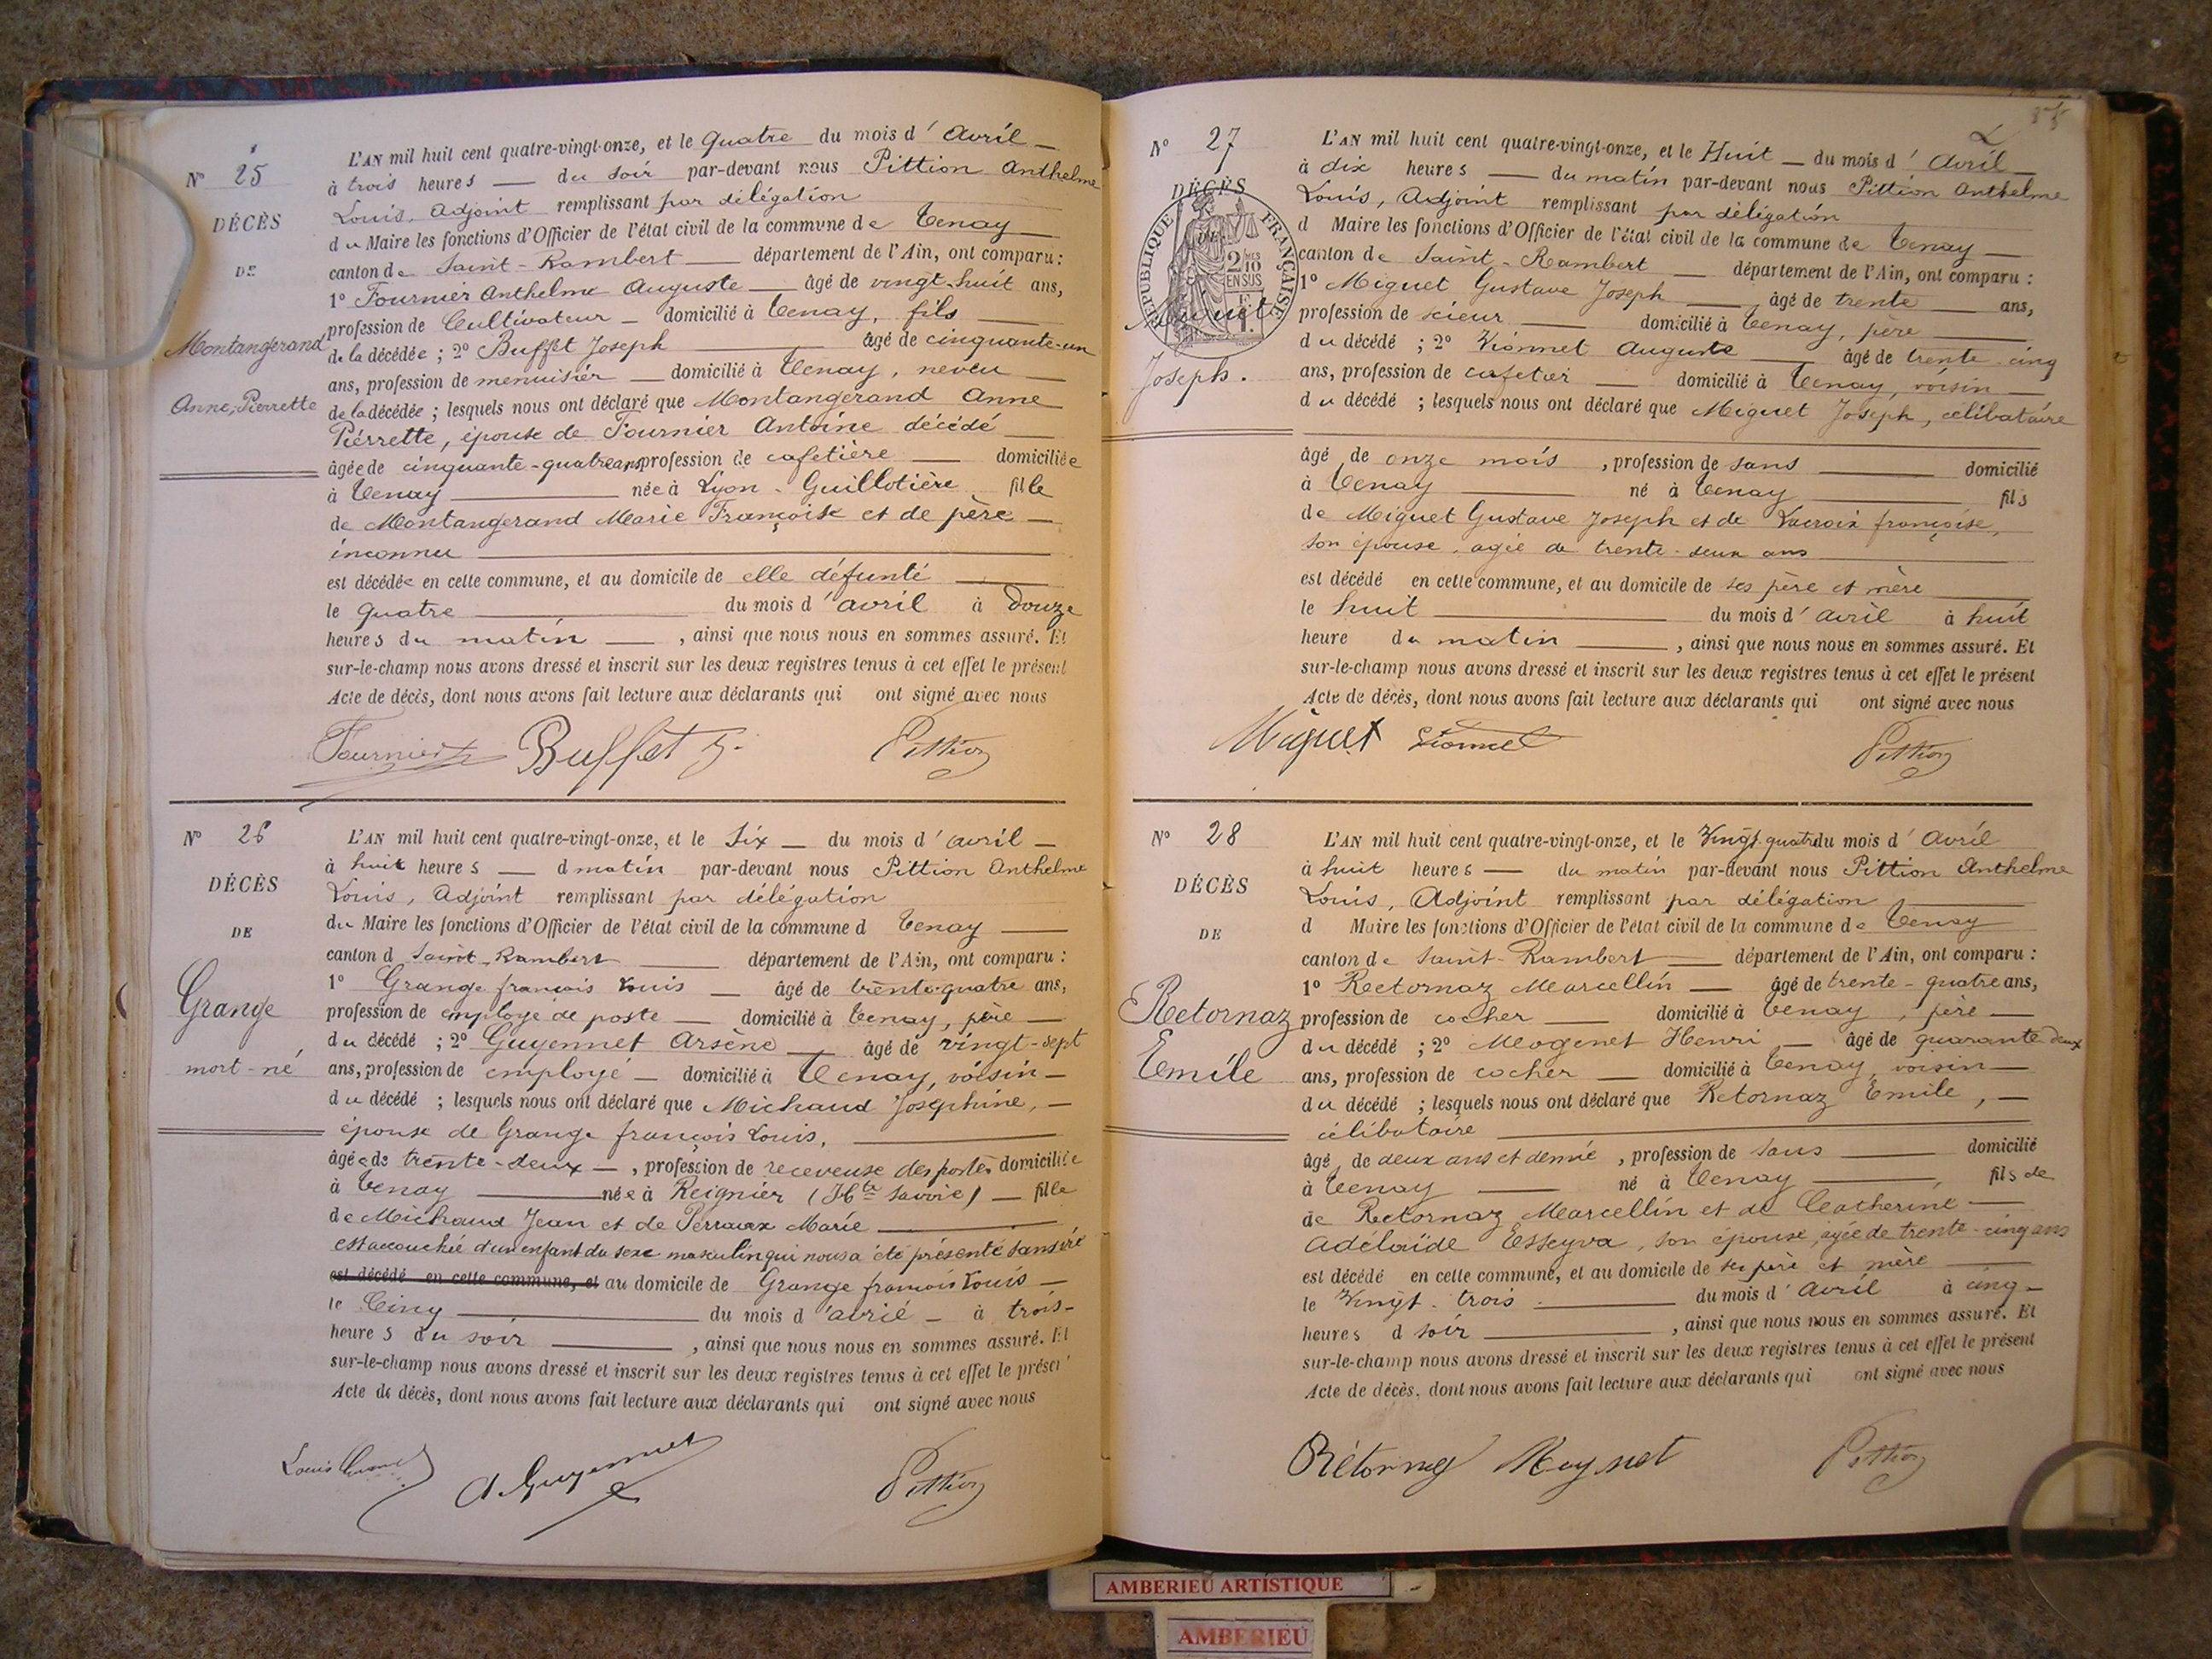 N° 25
DÉCÈS
DE
Montangerand
Anne, Pierrette
L'AN mil huit cent quatre-vingt-onze, et le Quatre du mois d'Avril
à trois heures du soir par-devant nous Pittion Anthelme
Louis, Adjoint remplissant par délégation
du Maire les fonctions d'Officier de l'état civil de la commune de Tenay
canton de Saint-Rambert département de l'Ain, ont comparu :
1° Fournier Anthelme Auguste âgé de vingt-huit ans,
profession de Cultivateur domicilié à Tenay, fils
de la décédée ; 2° Buffet Joseph âgé de cinquante-un
ans, profession de menuisier domicilié à Tenay, neveu
de la décédée ; lesquels nous ont déclaré que Montangerand Anne
Pierrette, épouse de Fournier Antoine décédé
âgée de cinquante-quatre ans profession de cafetière domiciliée
à Tenay née à Lyon-Guillotière fille
de Montangerand Marie Françoise et de père
inconnu
est décédée en cette commune, et au domicile de elle défunte
le quatre du mois d'avril à Douze
heures du matin, ainsi que nous nous en sommes assuré. Et
sur-le-champ nous avons dressé et inscrit sur les deux registres tenus à cet effet le présent
Acte de décès, dont nous avons fait lecture aux déclarants qui ont signé avec nous
Fournier Buffet J. Pittion
N° 26
DÉCÈS
DE
Grange
mort-né
L'AN mil huit cent quatre-vingt-onze, et le Six du mois d'avril
à huit heures d matin par-devant nous Pittion Anthelme
Louis, Adjoint remplissant par délégation
du Maire les fonctions d'Officier de l'état civil de la commune d Tenay
canton d Saint-Rambert département de l'Ain, ont comparu :
1° Grange françois Louis âgé de trente-quatre ans,
profession de employé de poste domicilié à Tenay, père
du décédé ; 2° Guyennet Arsène âgé de vingt-sept
ans, profession de employé domicilié à Tenay, voisin
du décédé ; lesquels nous ont déclaré que Michaud Joséphine,
épouse de Grange françois Louis,
âgée de trente-deux, profession de receveuse des postes domiciliée
à Tenay née à Reignier (Hte Savoie) fille
de Michaud Jean et de Perroux Marie
est accouchée d'un enfant du sexe masculin qui nous a été présenté sans vie
est décédé en cette commune, et au domicile de Grange françois Louis
le Cinq du mois d'avril à trois
heures du soir, ainsi que nous nous en sommes assuré. Et
sur-le-champ nous avons dressé et inscrit sur les deux registres tenus à cet effet le présent
Acte de décès, dont nous avons fait lecture aux déclarants qui ont signé avec nous
Louis A. Guyennet Pittion
N° 27
DÉCÈS
DE
RÉPUBLIQUE FRANÇAISE
2/10 EN SUS
Miguet
Joseph.
L'AN mil huit cent quatre-vingt-onze, et le Huit du mois d'Avril
à dix heures du matin par-devant nous Pittion Anthelme
Louis, Adjoint remplissant par délégation
d Maire les fonctions d'Officier de l'état civil de la commune de Tenay
canton de Saint-Rambert département de l'Ain, ont comparu :
1° Miguet Gustave Joseph âgé de trente ans,
profession de scieur domicilié à Tenay, père
du décédé ; 2° Vionnet Auguste âgé de trente cinq
ans, profession de cafetier domicilié à Tenay, voisin
du décédé ; lesquels nous ont déclaré que Miguet Joseph, célibataire
âgé de onze mois, profession de sans domicilié
à Tenay né à Tenay fils
de Miguet Gustave Joseph et de Lacroix françoise,
son épouse, agée de trente-deux ans
est décédé en cette commune, et au domicile de ses père et mère
le huit du mois d'avril à huit
heure du matin, ainsi que nous nous en sommes assuré. Et
sur-le-champ nous avons dressé et inscrit sur les deux registres tenus à cet effet le présent
Acte de décès, dont nous avons fait lecture aux déclarants qui ont signé avec nous
Miguet Vionnet Pittion
N° 28
DÉCÈS
DE
Retornaz
Emile
L'AN mil huit cent quatre-vingt-onze, et le Vingt quatre du mois d'Avril
à huit heures du matin par-devant nous Pittion Anthelme
Louis, Adjoint remplissant par délégation
d Maire les fonctions d'Officier de l'état civil de la commune de Tenay
canton de Saint-Rambert département de l'Ain, ont comparu :
1° Retornaz Marcellin âgé de trente-quatre ans,
profession de cocher domicilié à Tenay, père
du décédé ; 2° Mogenet Henri âgé de quarante deux
ans, profession de cocher domicilié à Tenay, voisin
du décédé ; lesquels nous ont déclaré que Retornaz Emile,
célibataire
âgé de deux ans et demie, profession de sans domicilié
à Tenay né à Tenay fils de
de Retornaz Marcellin et de Catherine
Adélaïde Esseyva, son épouse, agée de trente-cinq ans
est décédé en cette commune, et au domicile de ses père et mère
le Vingt-trois du mois d'Avril à cinq
heures d soir, ainsi que nous nous en sommes assuré. Et
sur-le-champ nous avons dressé et inscrit sur les deux registres tenus à cet effet le présent
Acte de décès, dont nous avons fait lecture aux déclarants qui ont signé avec nous
Rétornaz Pittion
AMBERIEU ARTISTIQUE
AMBERIEU